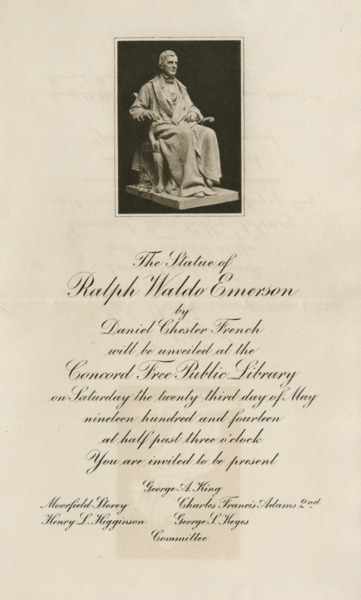 The Statue of
Ralph Waldo Emerson
by
Daniel Chester French
will be unveiled at the
Concord Free Public Library
on Saturday the twenty third day of May
nineteen hundred and fourteen
at half past three o'clock
You are invited to be present
George A. King
Moorfield Storey Charles Francis Adams 2nd
Henry L. Higginson George S. Keyes
Committee